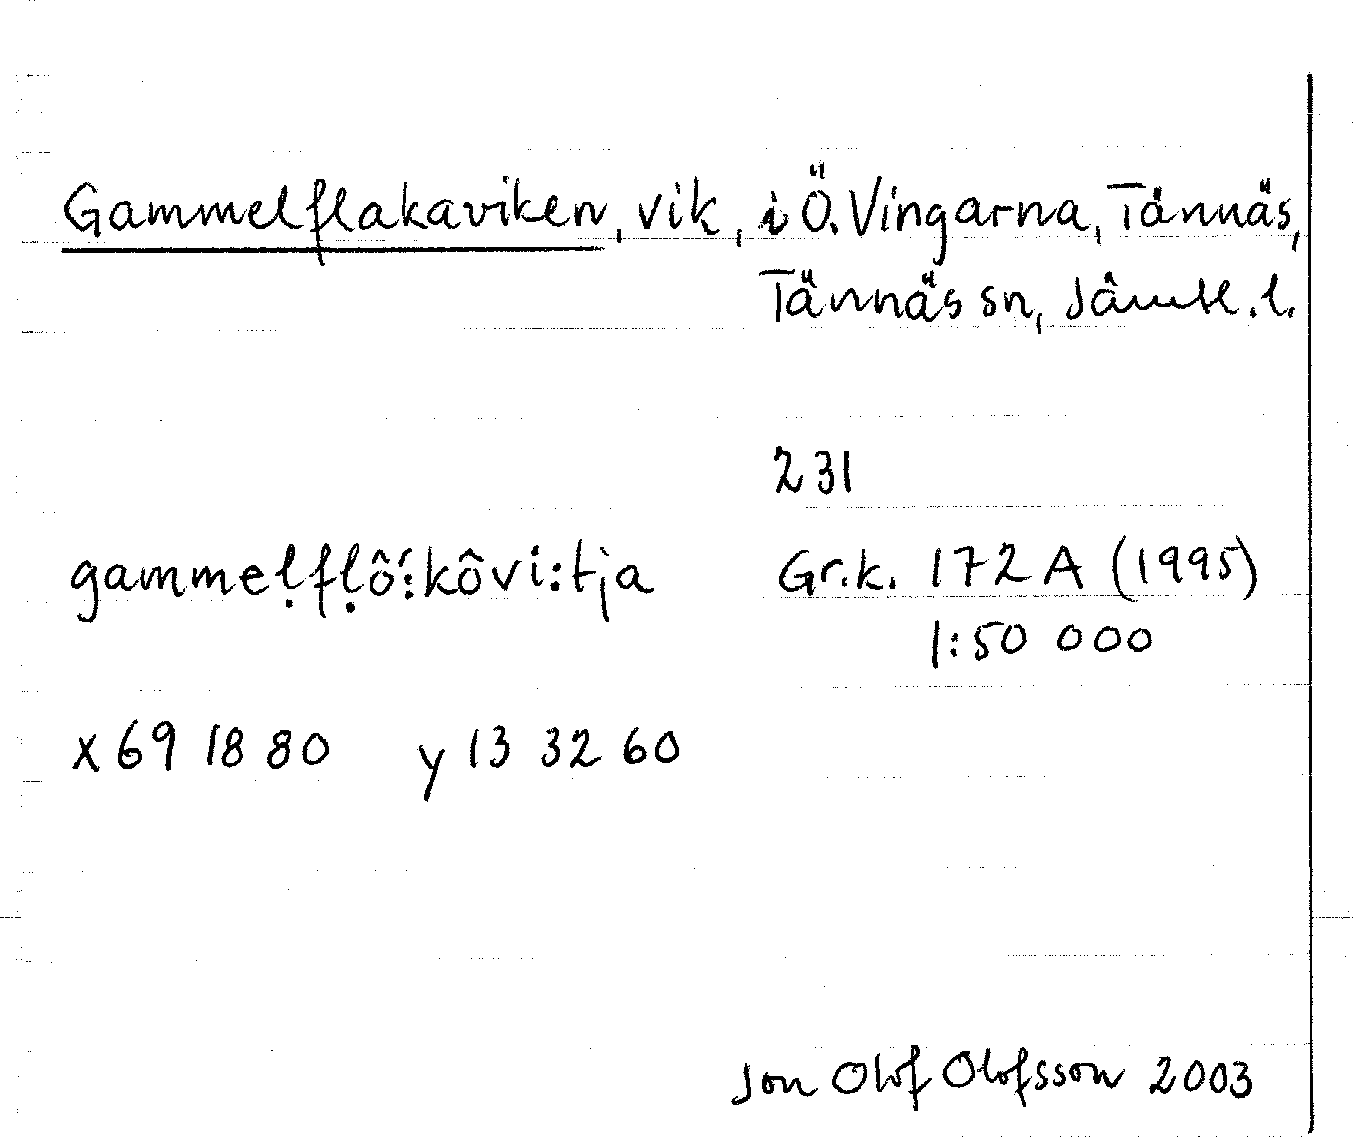 Gammelflakaviken, vik, i Ö. Vingarna, Tännäs,
Tännäs sn, Jämtl. l.
231
gammeḷfḷô´:kôvi:tja Gr.k. 172 A (1995)
1:50 000
x 69 18 80 y 13 32 60
Jon Olof Olofsson 2003